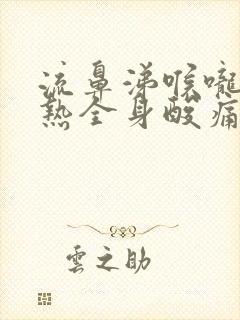 流鼻涕喉嚨
熱全身酸痛
雲之助